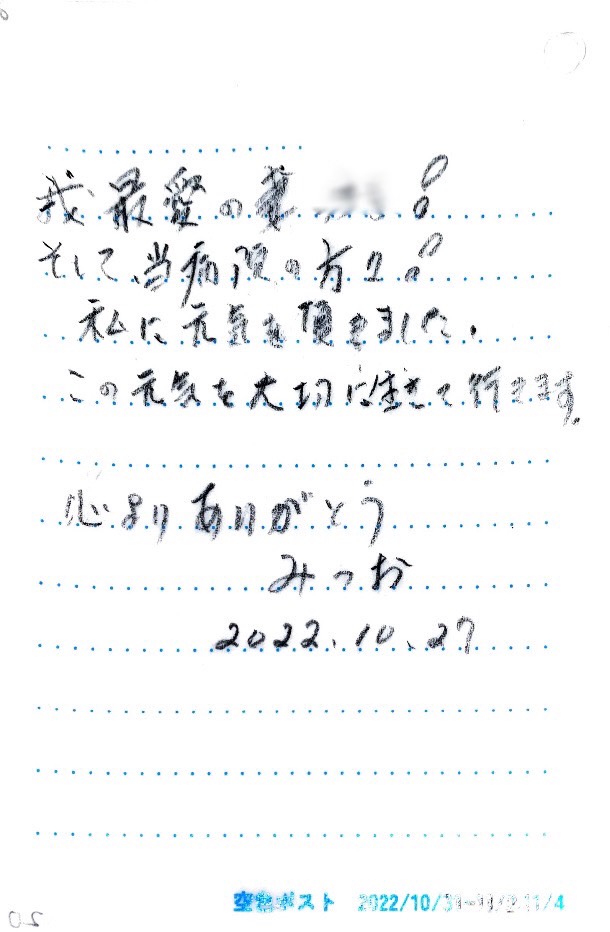 我最愛の妻 !
そして、当病院の方々!
私に元気を頂きました.
この元気を大切に生きて行きます。
心よりありがとう
みつお
2022.10.27
ポスト 2022/10/3 11/4
20